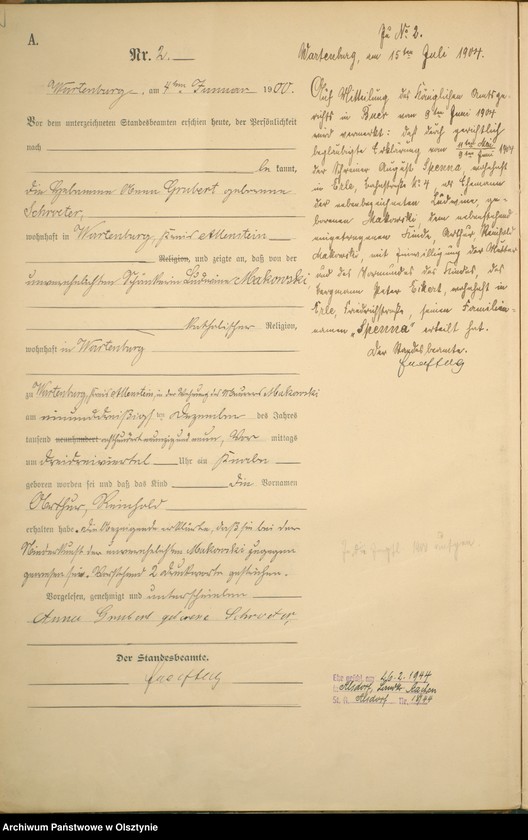 A.
Nr. 2.
Wartenburg, am 4ten Januar 1900.
Vor dem unterzeichneten Standesbeamten erschien heute, der Persönlichkeit
nach
be kannt,
die Hebamme Anna Grubert geborene
Schroeter,
wohnhaft in Wartenburg, Kreis Allenstein
Religion, und zeigte an, daß von der
unverehelichten Schänkerin Ludwina Makowski,
katholischer Religion,
wohnhaft in Wartenburg
zu Wartenburg, Kreis Allenstein, in der Wohnung des Maurers Makowski
am einunddreißigsten Dezember des Jahres
tausend neunhundert achthundert neunzig und neun, Vor mittags
um dreidreiviertel Uhr ein Knabe
geboren worden sei und daß das Kind die Vornamen
Arthur, Reinhold
erhalten habe. Die Anzeigende erklärte, daß sie bei der
Niederkunft der unverehelichten Makowski zugegen
gewesen sei. Vorstehend 2 Druckworte gestrichen.
Vorgelesen, genehmigt und unterschrieben
Anna Grubert geborene Schroeter,
Der Standesbeamte.
Zu No 2.
Wartenburg, am 15ten Juli 1904.
Auf Mitteilung des Königlichen Amtsge-
richts in Buer vom 9ten Juni 1904
wird vermerkt: daß durch gerichtlich
beglaubigte Erklärung vom 11ten Mai 9ten Juni 1904
der Schreiner August Spenna, wohnhaft
in Erle, Bahnstraße No 4, als Ehemann
der nebenbezeichneten Ludwina, ge-
borenen Makowski dem nebenstehend
eingetragenen Kinde, Arthur Reinhold
Makowski, mit Einwilligung der Mutter
und des Vormundes des Kindes, des
Bergmann Peter Eckert, wohnhaft in
Erle, Friedrichstraße, seinen Familien-
namen „Spenna" erteilt hat.
Der Standesbeamte.
Ehe geschl. am 26.2.1944
in Alsdorf, Landk. Aachen
St. A. Alsdorf Nr. 18/44
Archiwum Państwowe w Olsztynie